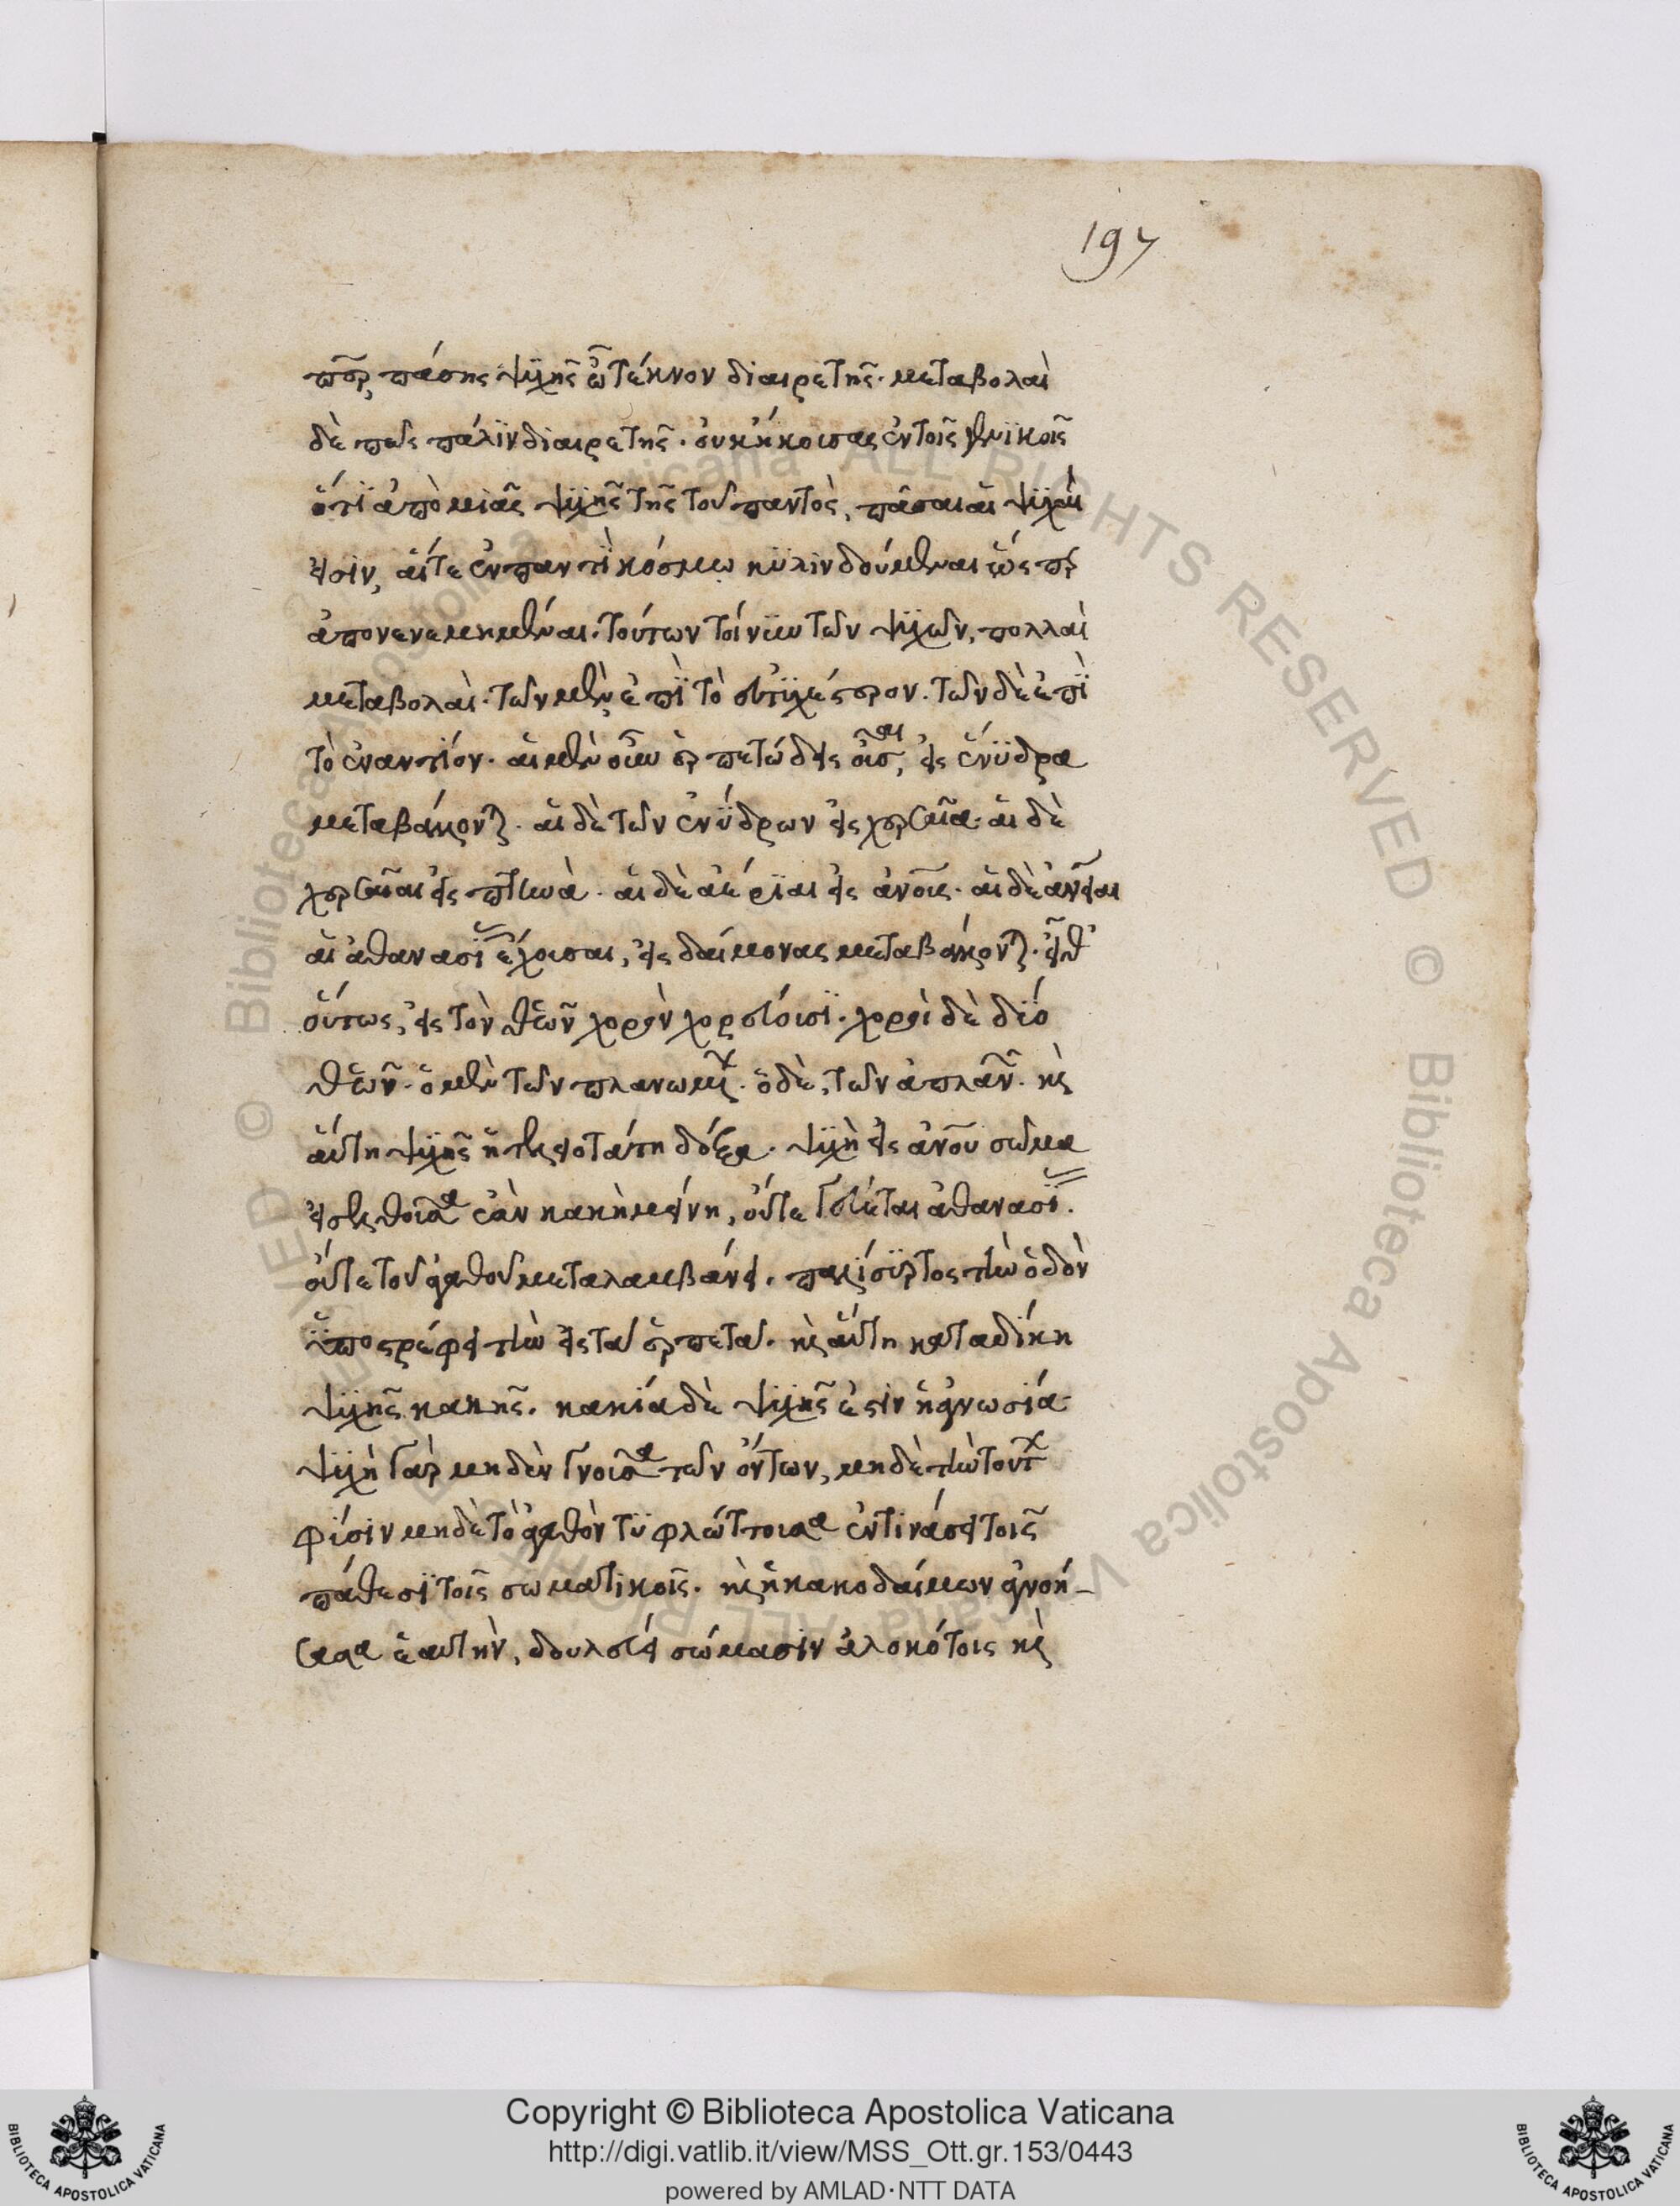 197
πῶς πάσης ψυχῆς ὦ τέκνον διαιρετῆς. μεταβολαὶ
δὲ πῶς πάλιν διαιρετῆς. οὐκ ἤκουσας ἐν τοῖς γενικοῖς
ὅτι ἀπὸ μιᾶς ψυχῆς τῆς τοῦ παντὸς, πᾶσαι αἱ ψυχαὶ
εἰσὶν, αἵ τε ἐν παντὶ κόσμω κυλινδούμεναι ὥσπερ
ἀπονενεμημέναι. τούτων τοίνυν τῶν ψυχῶν, πολλαὶ
μεταβολαὶ. τῶν μὲν ἐπὶ τὸ εὐτυχέστερον. τῶν δὲ ἐπὶ
τὸ ἐναντίον. αἱ μὲν οὖν ἑρπετώδεις οὖσαι, εἰς ἔνυδρα
μεταβάλλουσι. αἱ δὲ τῶν ἐνύδρων εἰς χερσαῖα. αἱ δὲ
χερσαῖαι εἰς πτηνὰ. αἱ δὲ ἀέριαι εἰς ἀνους. αἱ δὲ ἀνῖναι
αἱ ἀθανασί ἔχουσαι, εἰς δαίμονας μεταβάλλουσι. εἶθ'
οὕτως, εἰς τὸν θεῶν χορὸν χορεύουσι. χοροὶ δὲ δύο
θεῶν. ὁ μὲν τῶν πλανωμέν. ὁ δὲ, τῶν ἀπλανῶν. καὶ
αὕτη ψυχῆς ἡ τελειοτάτη δόξα. ψυχὴ εἰς ἀνου σῶμα
εἰσελθοῦσα ἐὰν κακὴ μείνη, οὔτε γεύεται ἀθανασί.
οὔτε τοῦ ἀγαθοῦ μεταλαμβάνει. παλίσυρτος τὴν ὁδὸν
ὑποστρέφει τὴν εἰς τὰ ἑρπετὰ. καὶ αὕτη καταδίκη
ψυχῆς κακῆς. κακία δὲ ψυχῆς ἐστὶν ἡ ἀγνωσία.
ψυχὴ γὰρ μηδὲν γνοῦσα τῶν ὄντων, μηδὲ τὴν τούτων
φύσιν μηδὲ τὸ ἀγαθὸν τυφλώττουσα ἐντινάσει τοῖς
πάθεσι τοῖς σωματικοῖς. καὶ ἡ κακοδαίμων ἀγνοή-
σασα ἑαυτὴν, δουλεύει σώμασιν ἀλοκότοις καὶ
© Biblioteca Apostolica Vaticana ALL RIGHTS RESERVED © Biblioteca Apostolica Vaticana ALL RIGHTS RESERVED
Copyright © Biblioteca Apostolica Vaticana
http://digi.vatlib.it/view/MSS_Ott.gr.153/0443
powered by AMLAD·NTT DATA
BIBLIOTECA APOSTOLICA VATICANA
BIBLIOTECA APOSTOLICA VATICANA